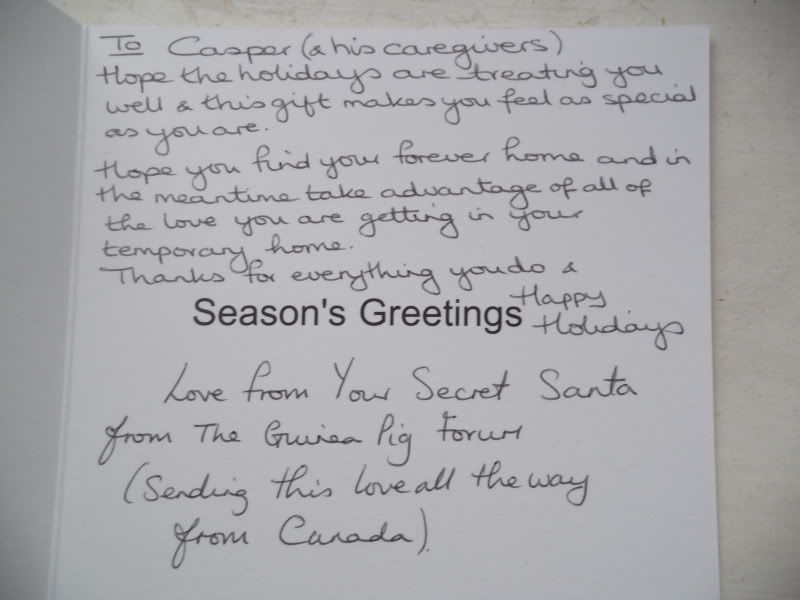 To Casper (& his caregivers)
Hope the holidays are treating you
well & this gift makes you feel as special
as you are.
Hope you find your forever home and in
the meantime take advantage of all of
the love you are getting in your
temporary home.
Thanks for everything you do &
Happy
Season's Greetings
Holidays
Love from Your Secret Santa
from The Guinea Pig Forum
(Sending this love all the way
from Canada).